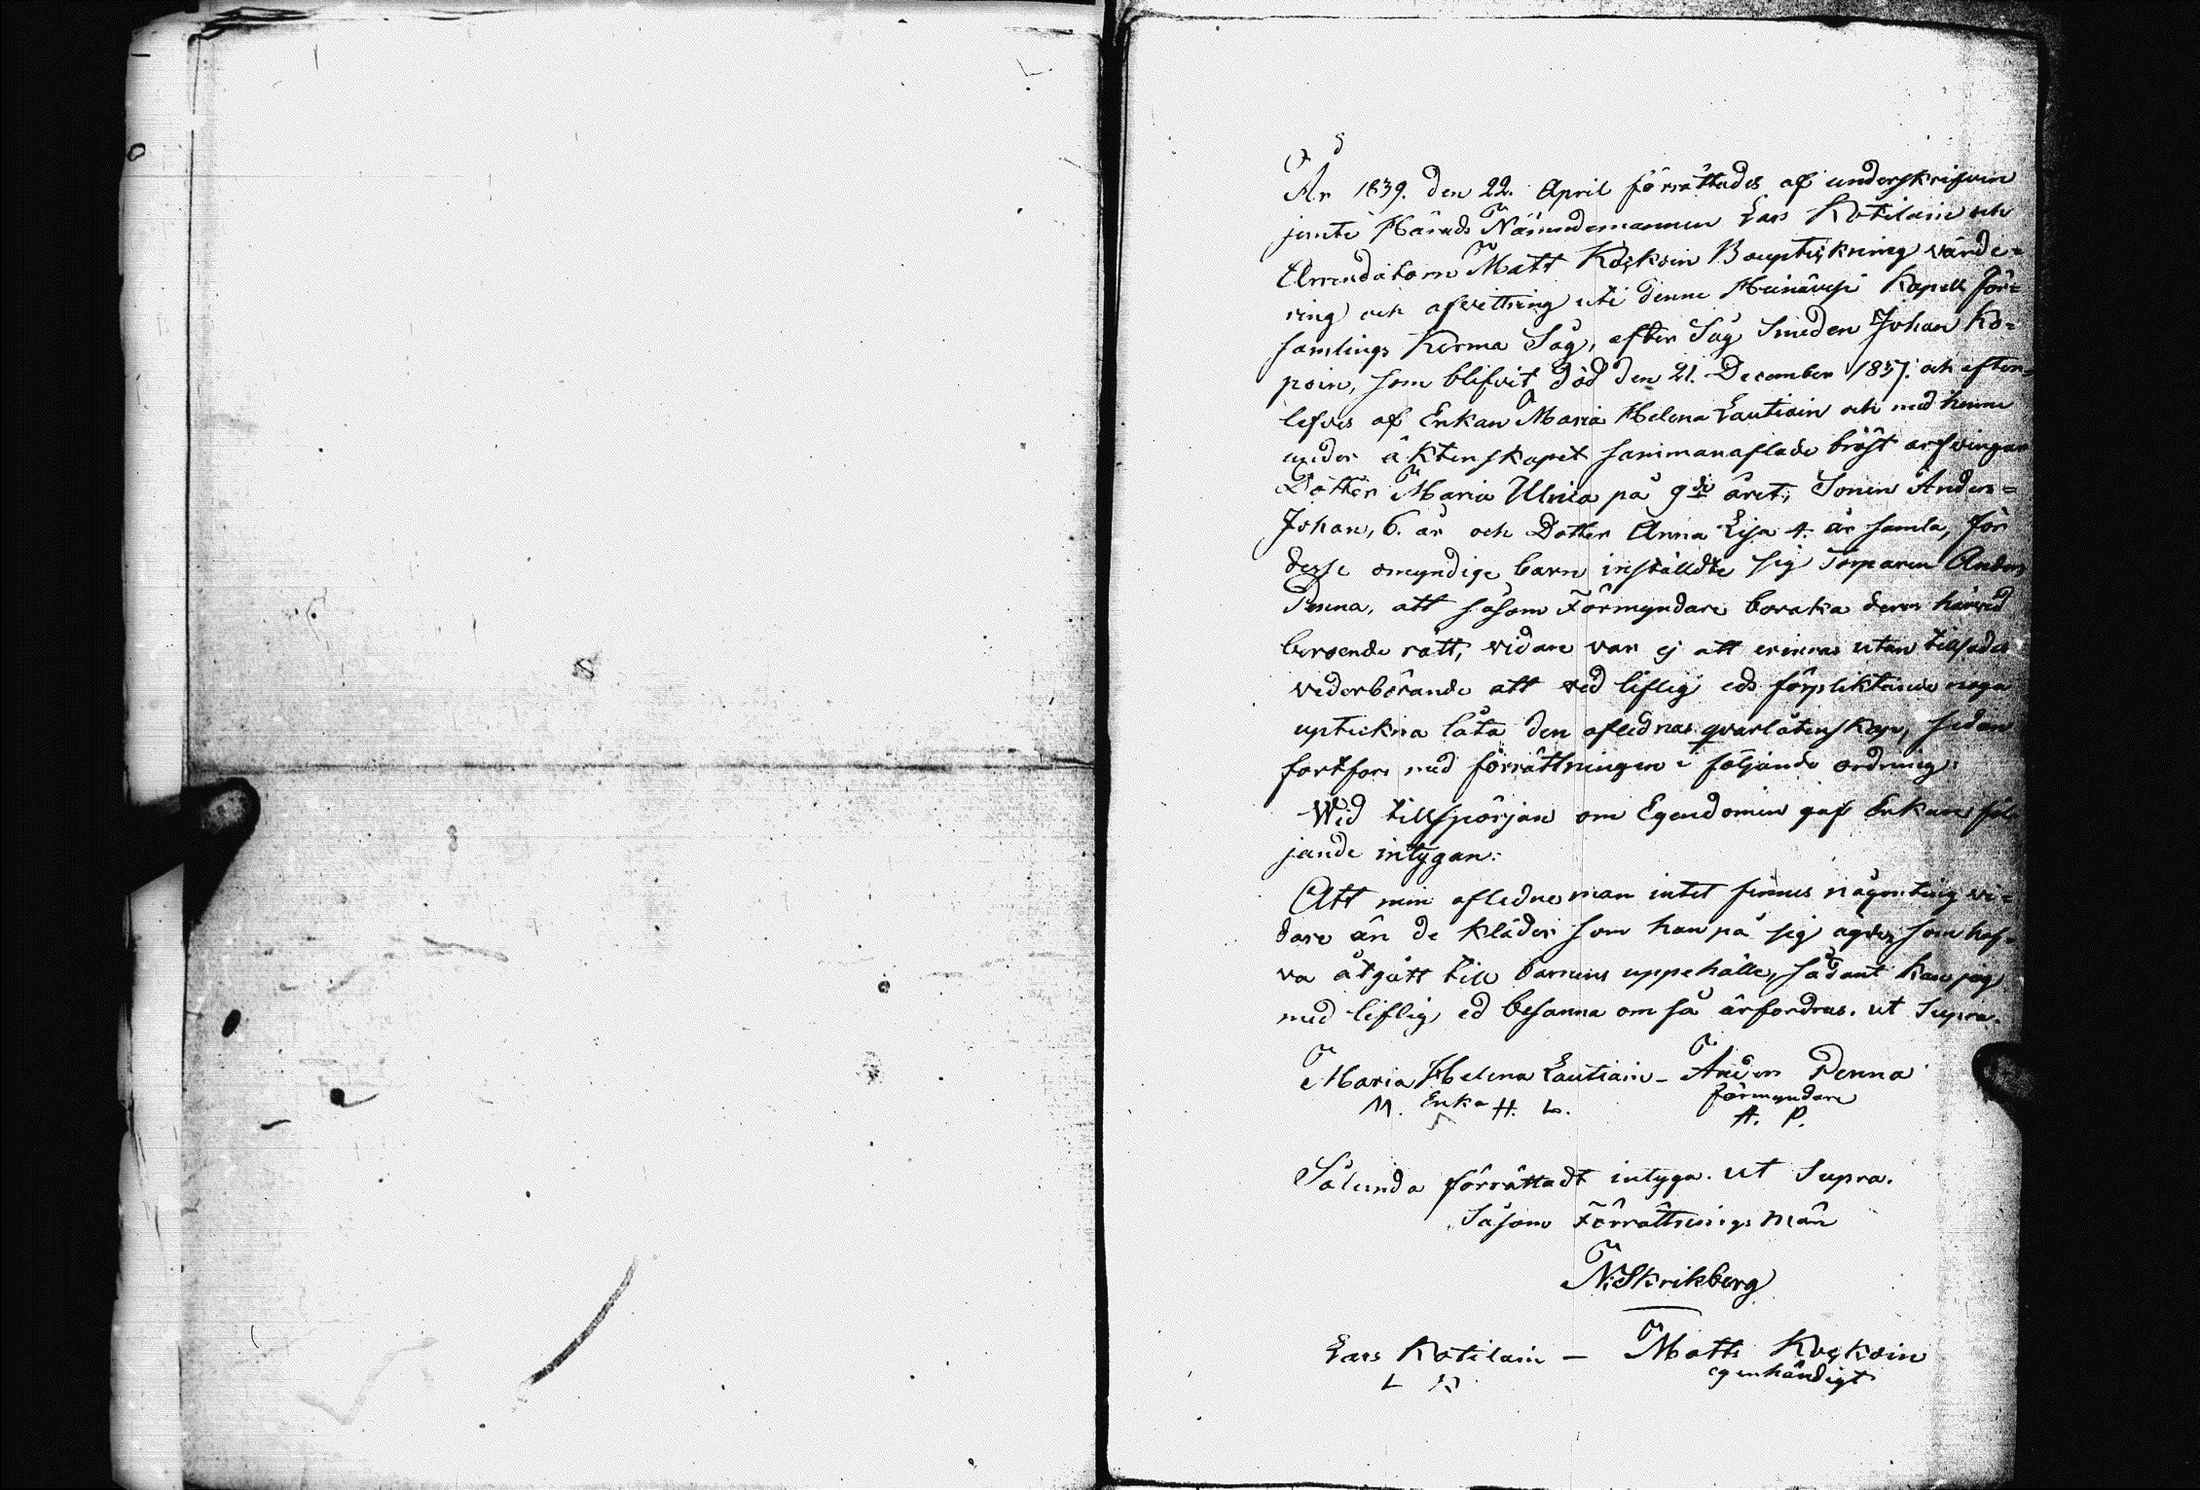 År 1839. den 22. April förrättades af underskrifvin
jemte Härads Nämndemannen Lars Kotilain och
Arrendatorn Matt Koskoin Boupteckning värde-
ring och afvittring uti denne Heinävesi Kapell För-
samlings Kerma Såg, efter Såg Smeden Johan Ko-
poin, som blifvit död den 21. December 1837. och efter-
lefves af Enkan Maria Helena Lautiain och med henne
under äktenskapet sammanaflade bröst arfvingar
Dotter Maria Ulrica på 9de året, Sonen Anders-
Johan, 6. år och Dotter Anna Lisa 4. år gamla, för
desse omyndige barn inställdte sig Torparen Anders
Penna, att såsom Förmyndare bevaka deras härvid
beroende rätt, vidare var ej att erinras utan tillsades
vederbörande att ved liflig eds förpliktande noga
uptekna låta den aflednas qvarlåtenskap, sedan
fortfors med förrättningen i följande ordning:
Wid tillspörjan om Egendomen gaf Enkan föl-
jande intygan:
Att min afledne man intet finnes någonting vi-
dare än de kläder som han på sig som haf-
va åtgått till barnens uppehälle, sådant kan jag
med liflig ed besanna om så ärfordras. ut Supra.
Maria Helena Lautiain - Anders Penna
M. Enka H. L. förmyndare
A. P.
Sålunda förrättadt intyga. ut Supra.
Såsom Förrättnings män
N: Skrikberg
Lars Kotilain - Matts Koskoin
L K egenhändigt